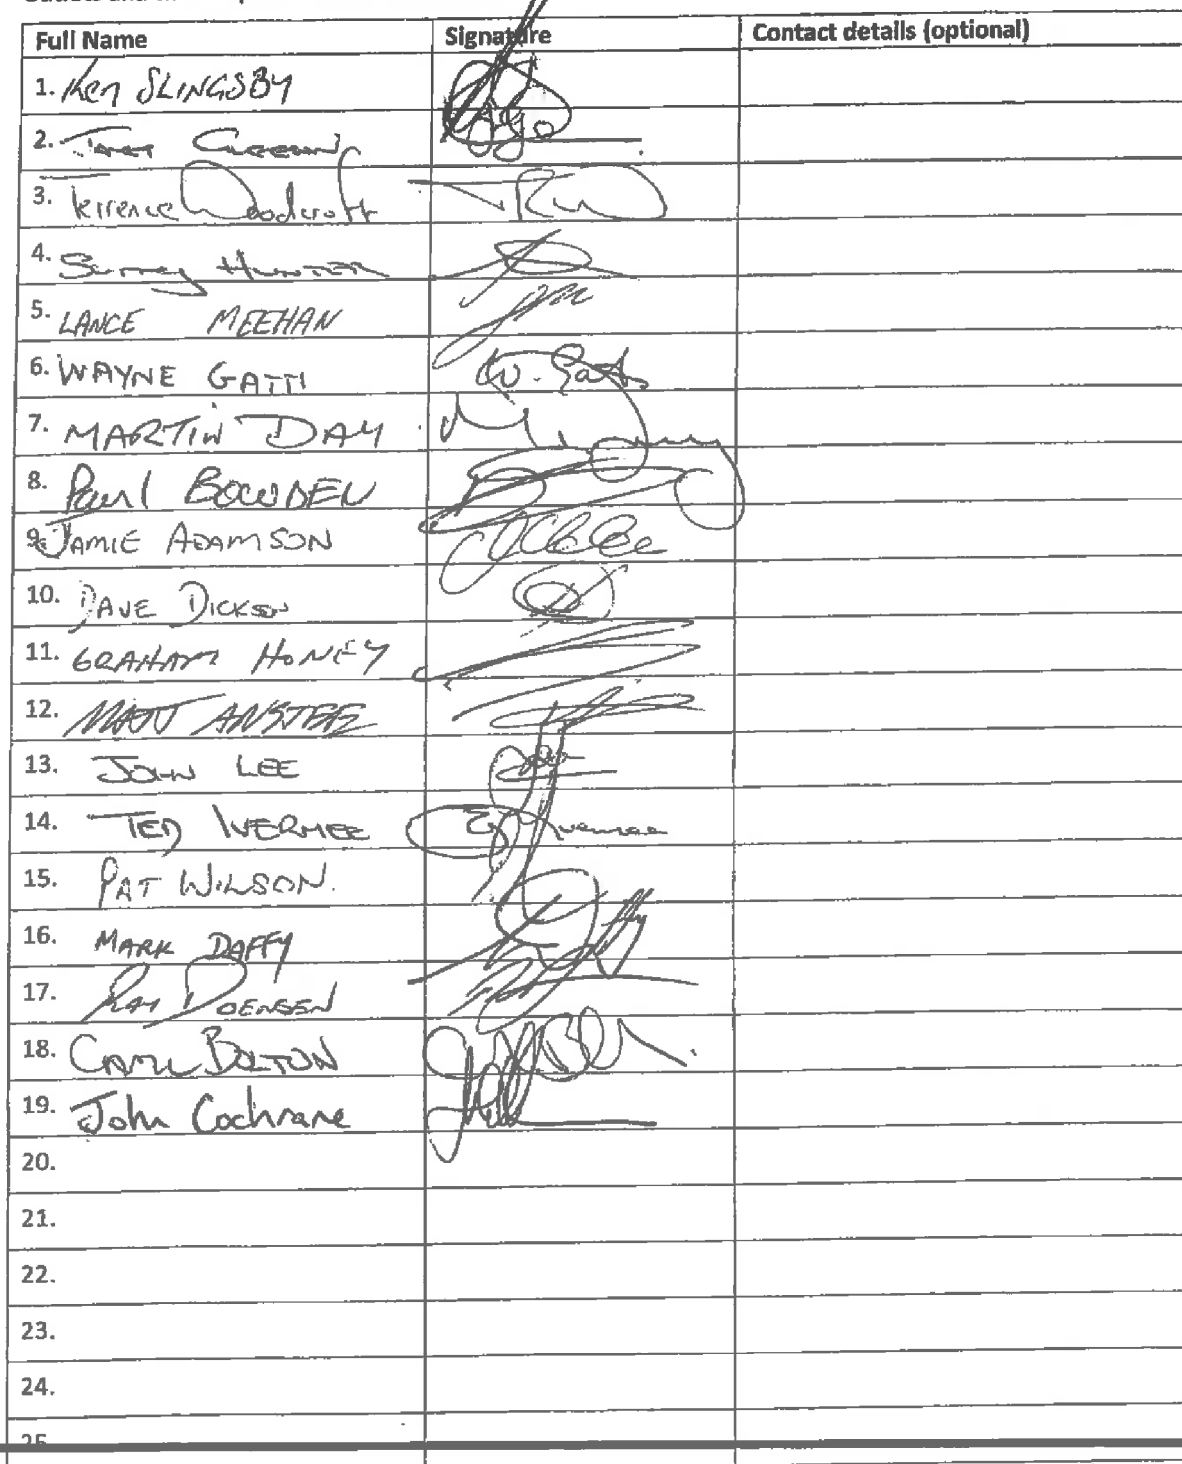 Full Name Signature Contact details (optional)
1. Ken SLINGSBY
2.
3. Terrence Woodcroft
4. Surrey HUNTER
5. LANCE MEEHAN
6. WAYNE GATTI W. Gatti
7. MARTIN DAY
8. Paul BOWDEN
9. JAMIE ADAMSON
10. DAVE DICKEN
11. GRAHAM HONEY
12. MATT ANSTEE
13. JOHN LEE
14. TED IVERMEE
15. PAT WILSON.
16. MARK DAFFY
17. RAY
18. CARL BOLTON
19. John Cochrane
20.
21.
22.
23.
24.
25